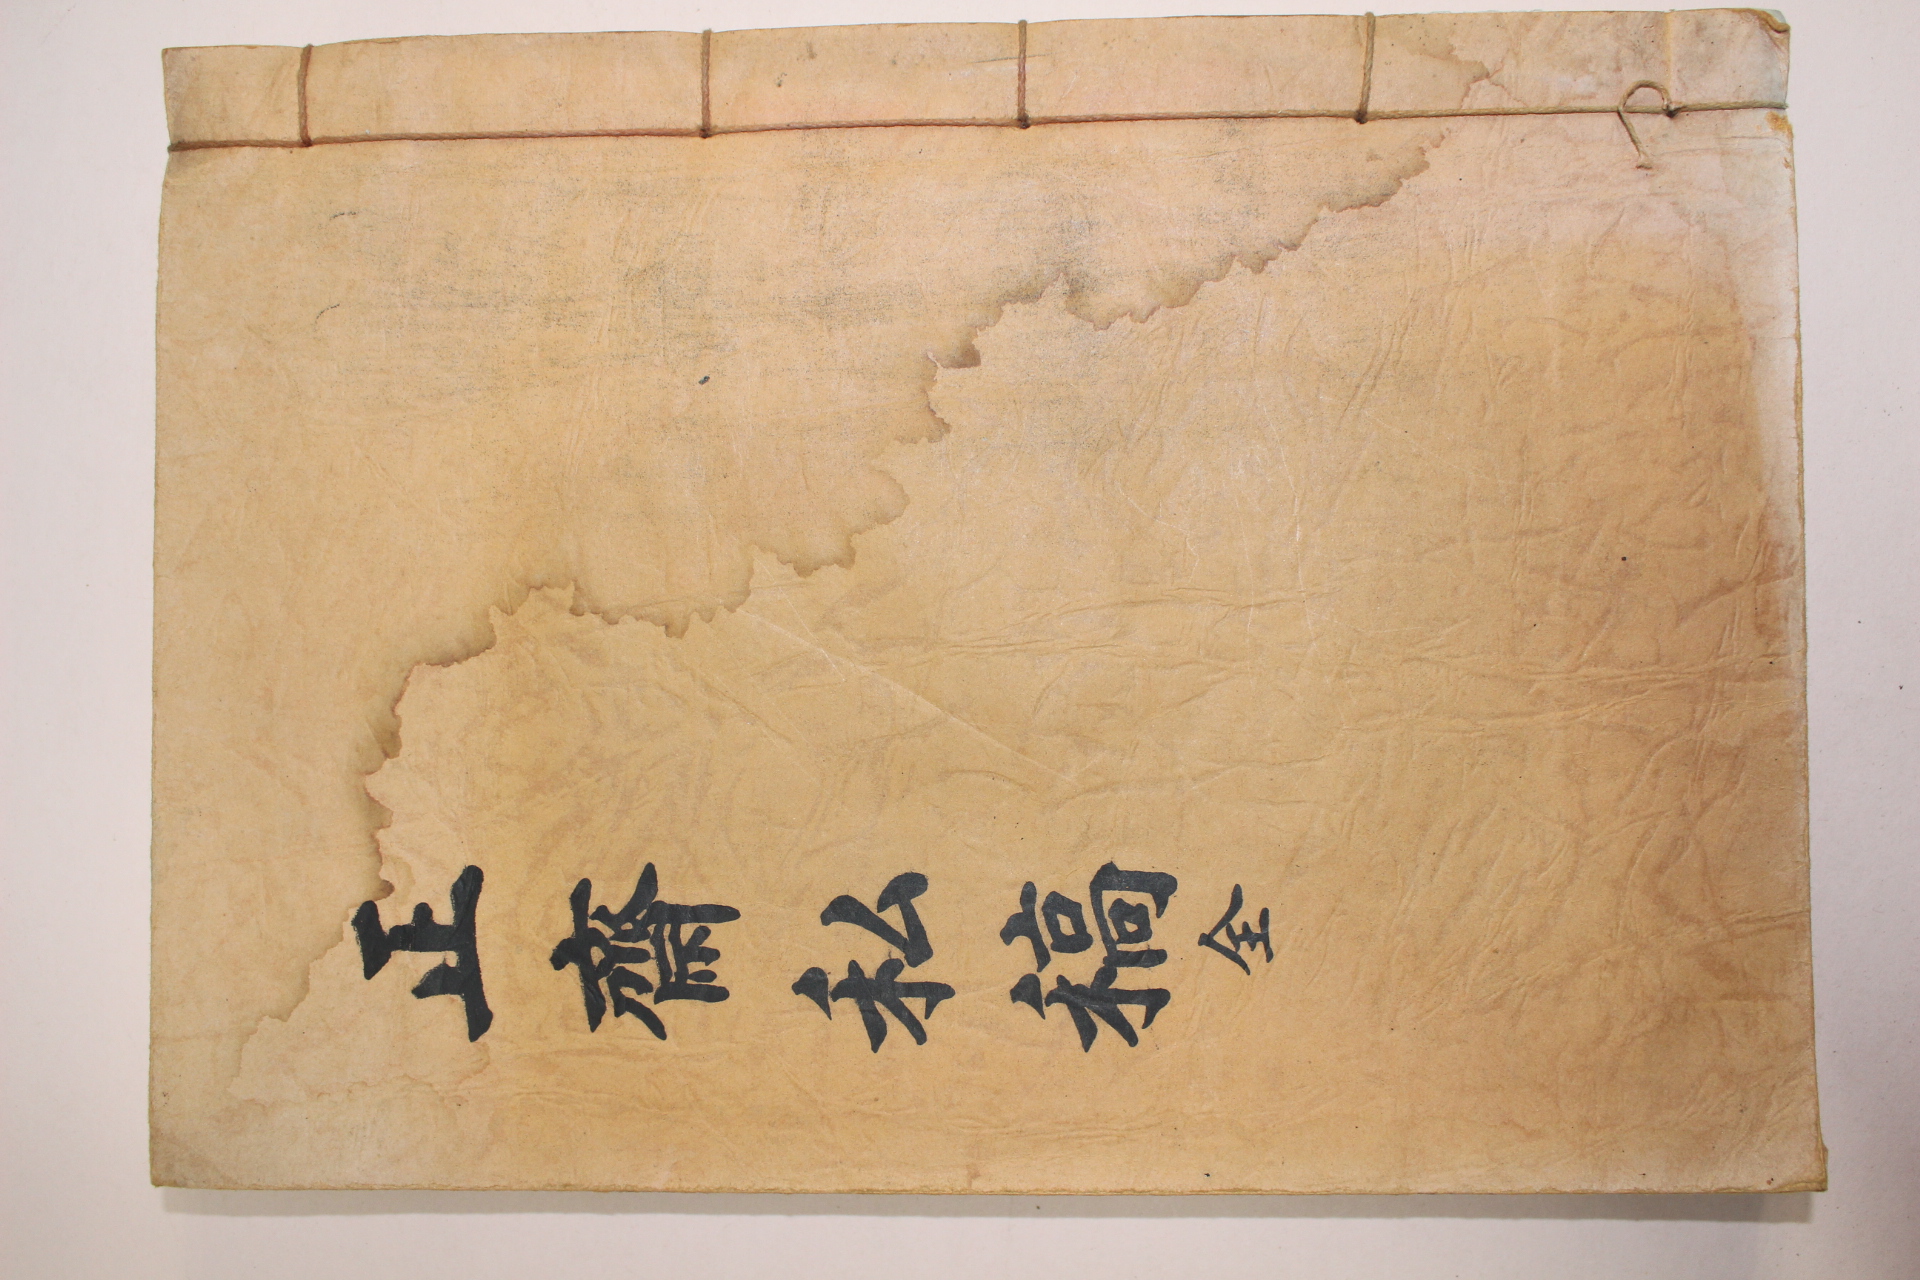 正齋私稿 全